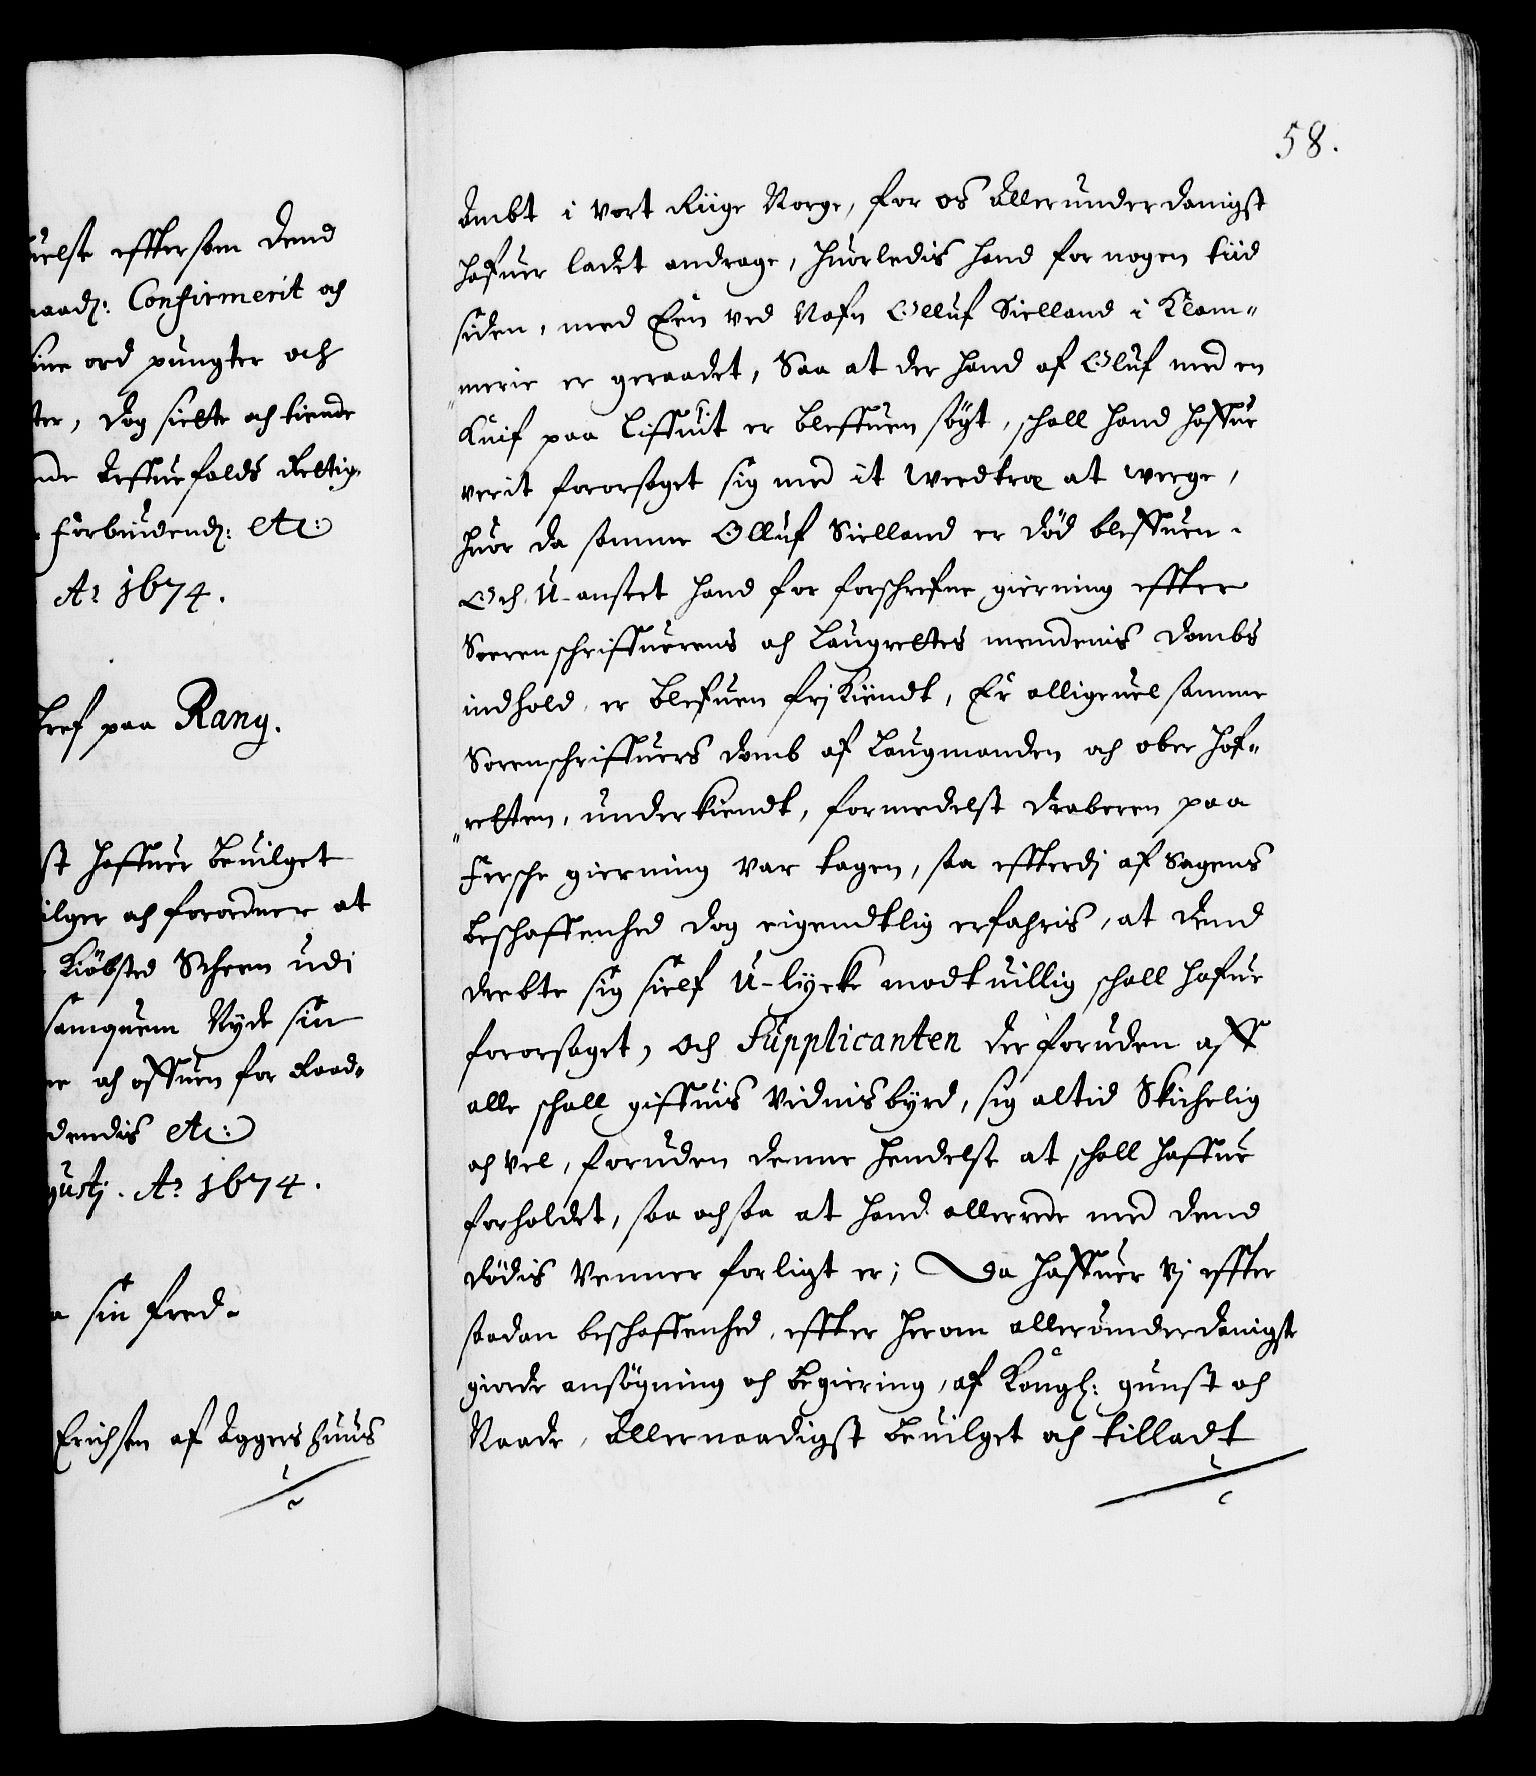 uelse efftersom dend
naadg: Confirmerit och
sine ord pungter och
ter, dog siette och tiende
nde Leffuefalds Rettig-
forbiudendg: etc:
Ao 1674.
bref paa Rang.
st haffuer beuilget
ilger och forordner at
Kiöbsted Scheen udi
samquem Nyde sin
er och offuen for Raad-
dendis etc:
gustj. Ao 1674.
a sin fred.
Erichsen af Aggershuus
58.
Ambt i vort Riige Norge, for os Allerunderdanigst
hafuer ladet andrage, huorledis hand for nogen tiid
siden, med Een ved Nafn Olluf Sielland i Klam-
merie er geraadet, Saa at der hand af Oluf med en
Knif paa Liffuit er bleffuen sögt, schall hand haffue
verit foraarsaget sig med it weedtræ at werge,
huor da samme Olluf Sielland er död bleffuen.
Och U-anseet hand for forschrefne gierning effter
Sorenschriffuerens och Laugrettes mendenis dombs
indhold er blefuen frj Kiendt, Er alligeuel samme
Sorenschriffuers domb af Laugmanden och ober hof-
retten, underkiendt, formedelst draberen paa
Fersche gierning var tagen, saa effterdj af Sagens
beschaffenhed dog eigendtlig erfahris, at dend
drebte sig sielf U-lycke modtuillig schall hafue
foraarsaget, och Supplicanten der foruden aff
alle schall giffuis Vidnisbyrd, sig altid Skichelig
och vel, foruden denne hendelse at schall haffue
forholdet, saa och saa at hand allerede med dend
Dödis Venner forligt er; Da haffuer vj effter
saadan beschaffenhed, effter herom allerunderdanigste
giorde ansögning och begiering, af Kongl: gunst och
Naade, Allernaadigst beuilget och tilladt